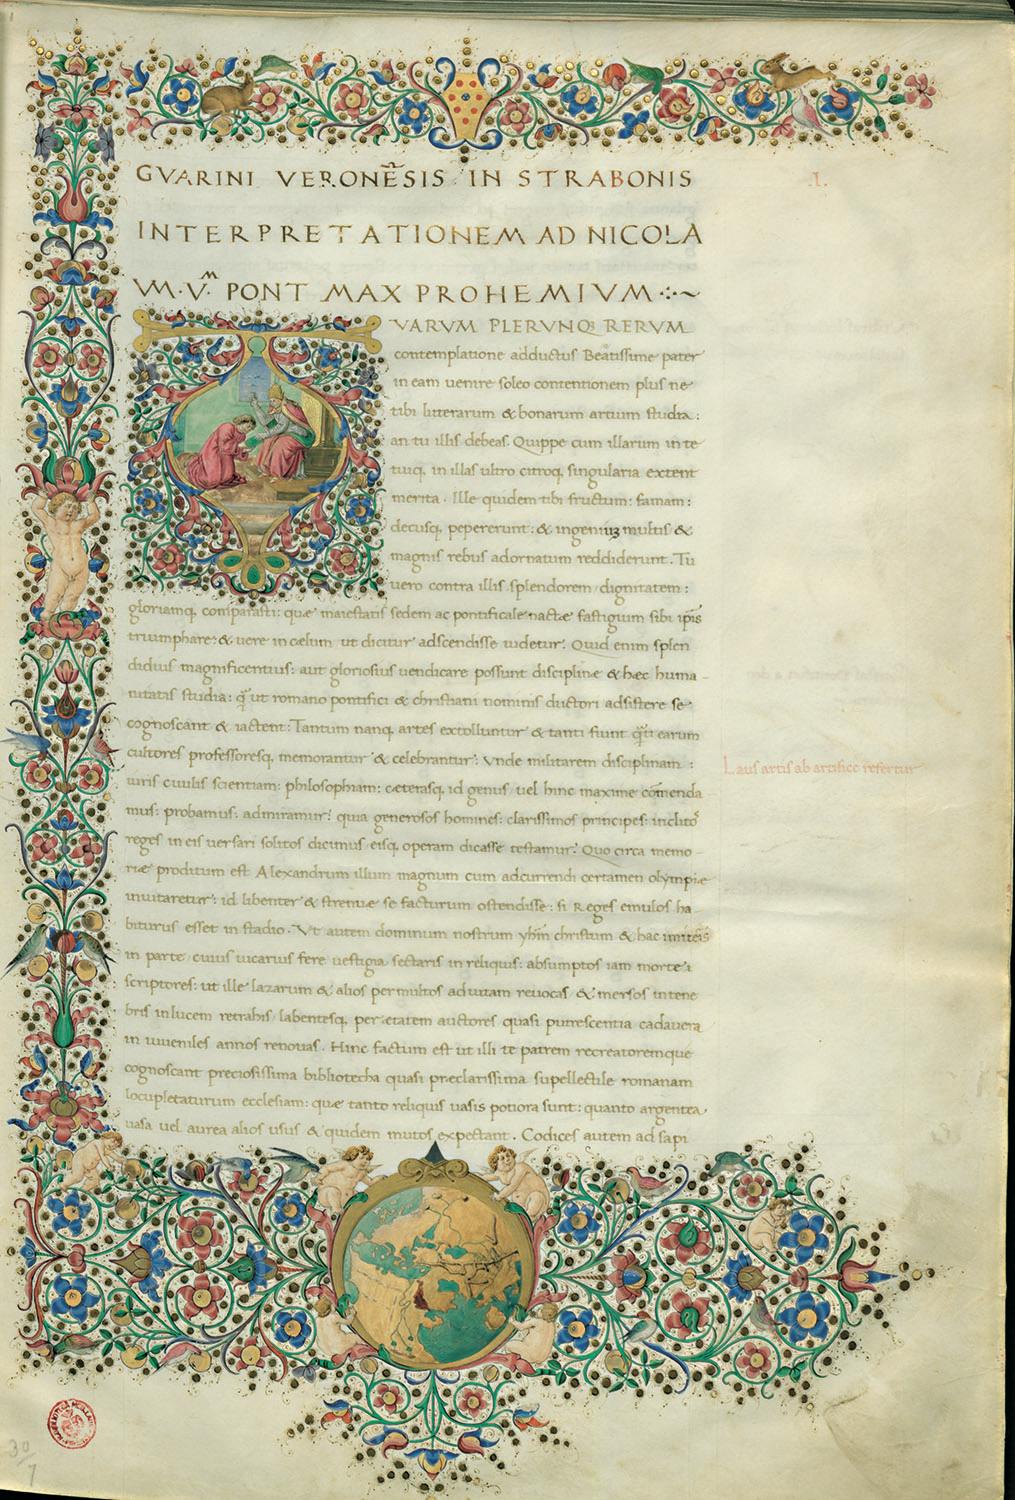 GVARINI VERONẼSIS IN STRABONIS
INTERPRETATIONEM AD NICOLA
VM · V.ᴹ PONT MAX PROHEMIVM
VARVM PLERVNQ; RERVM
contemplatione adductus Beatissime pater
in eam uenire soleo contentionem plus ne
tibi litterarum & bonarum artium studia:
an tu illis debeas. Quippe cum illarum in te
tuiq; in illas ultro citroq; singularia extent
merita. Ille quidem tibi fructum: famam:
decusq; pepererunt: & ingenium multis &
magnis rebus adornatum reddiderunt. Tu
uero contra illis splendorem dignitatem:
gloriamq; comparasti: quæ maiestatis sedem ac pontificale nactæ fastigium sibi ipis
triumphare: & uere in cælum ut dicitur adscendisse uidetur. Quid enim splen
didius magnificentius: aut gloriosius uendicare possunt disciplinæ & hæc huma
nitatis studia: q̃ ut romano pontifici & christiani nominis ductori adsistere se
cognoscant & iactent: Tantum nanq; artes extolluntur & tanti fiunt q̃ti earum
cultores professoresq; memorantur & celebrantur: Vnde militarem disciplinam:
iuris ciuilis scientiam: philosophiam: cæterasq; id genus uel hinc maxime cõmenda
mus: probamus: admiramur: quia generosos homines: clarissimos principes: inclitos
reges in eis uersari solitos dicimus eisq; operam dicasse testamur: Quo circa memo
riæ proditum est Alexandrum illum magnum cum adcurrendi certamen olympiæ
inuitaretur: id libenter & strenue se facturum ostendisse: si Reges emulos ha
biturus esset in stadio. Vt autem dominum nostrum yhm christum & hac
in parte cuius uicarius fere uestigia sectaris in reliquis: absumptos iam morte
scriptores: ut ille lazarum & alios permultos ad uitam reuocas & mersos in tene
bris in lucem retrahis labentesq; per ætatem auctores quasi putrescentia cadauera
in iuueniles annos renouas. Hinc factum est ut illi te patrem recreatoremque
cognoscant preciosissima bibliotecha quasi præclarissima supellectile romanam
locupletaturum ecclesiam: quæ tanto reliquis uasis potiora sunt: quanto argentea
uasa uel aurea alios usus & quidem mutos expectant. Codices autem ad sapi
.I.
Laus artis ab artifice refertur
30
7